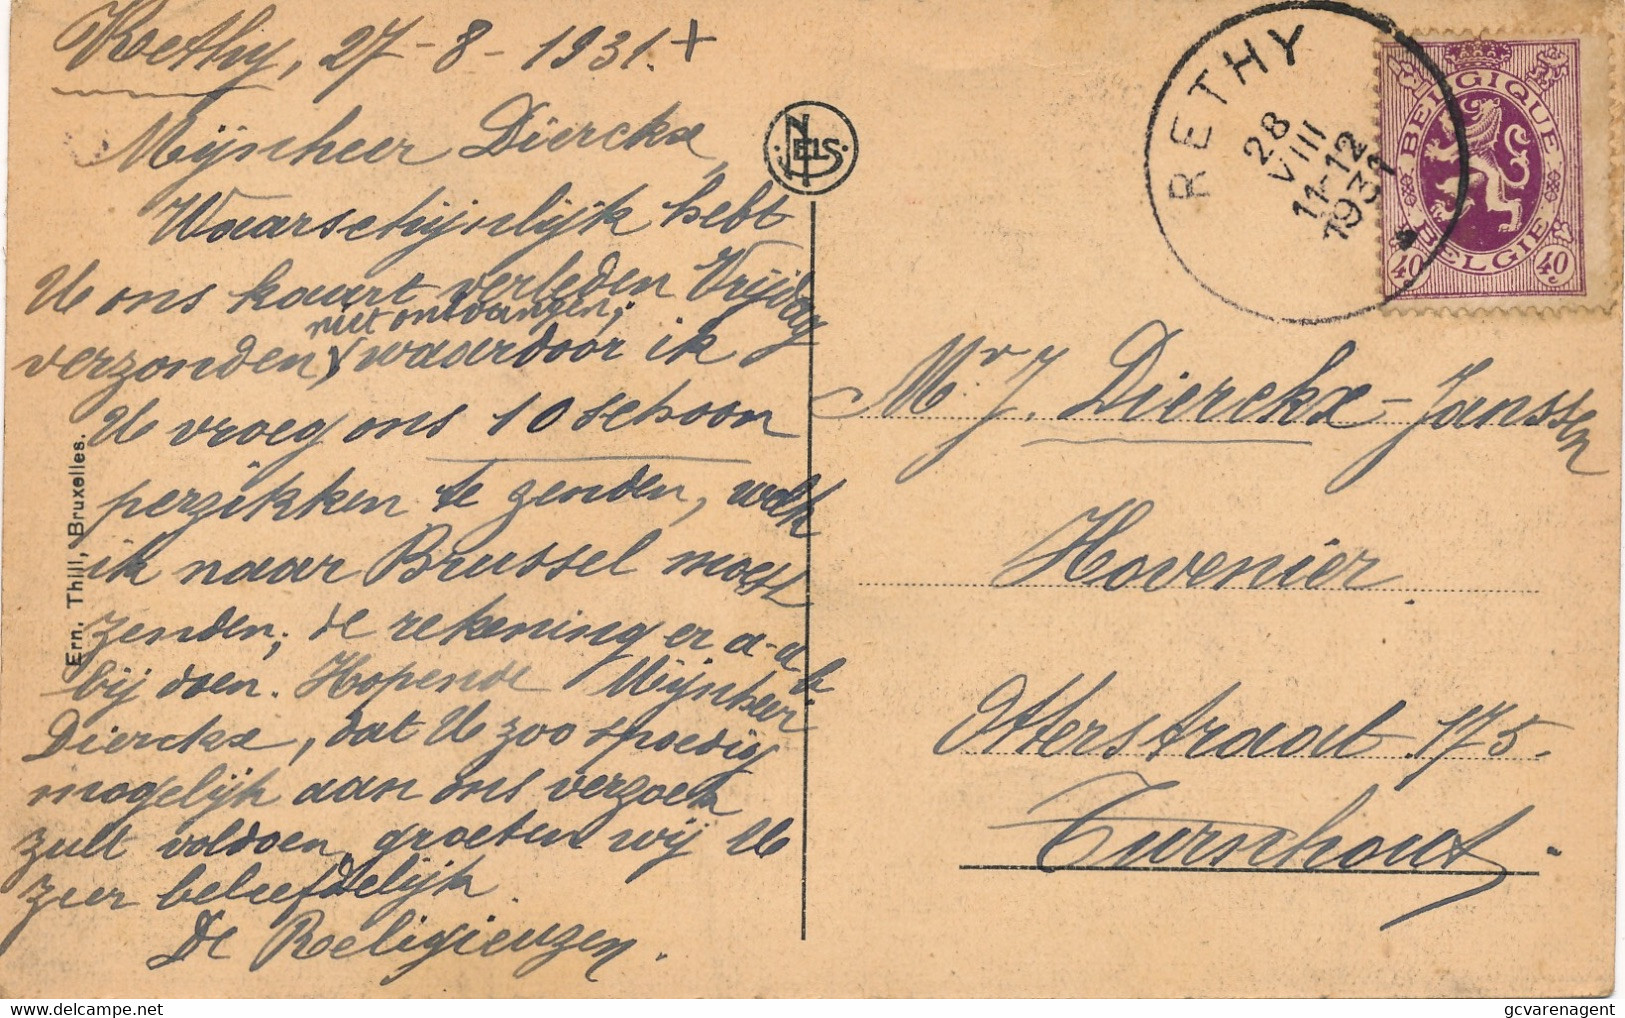 Rethy, 27-8-1931. +
Mijnheer Dierckx,
Waarschijnlijk hebt
U ons kaart verleden Vrijdag
niet ontvangen;
verzonden, waardoor ik
U vroeg ons 10 schoon
perzikken te zenden, welk
ik naar Brussel moest
zenden; de rekening er a-u-b
bij doen. Hopende Mijnheer
Dierckx, dat U zoo spoedig
mogelijk aan ons verzoek
zult voldoen, groeten wij U
zeer beleefdelijk.
De Religieuzen.
Ern. Thill, Bruxelles.
NELS
RETHY
28
VIII
11-12
1931
BELGIQUE
BELGIE
40 40
Mr J. Dierckx-Janssen
Hovenier.
Otterstraat 175.
Turnhout.
gcvarenagent